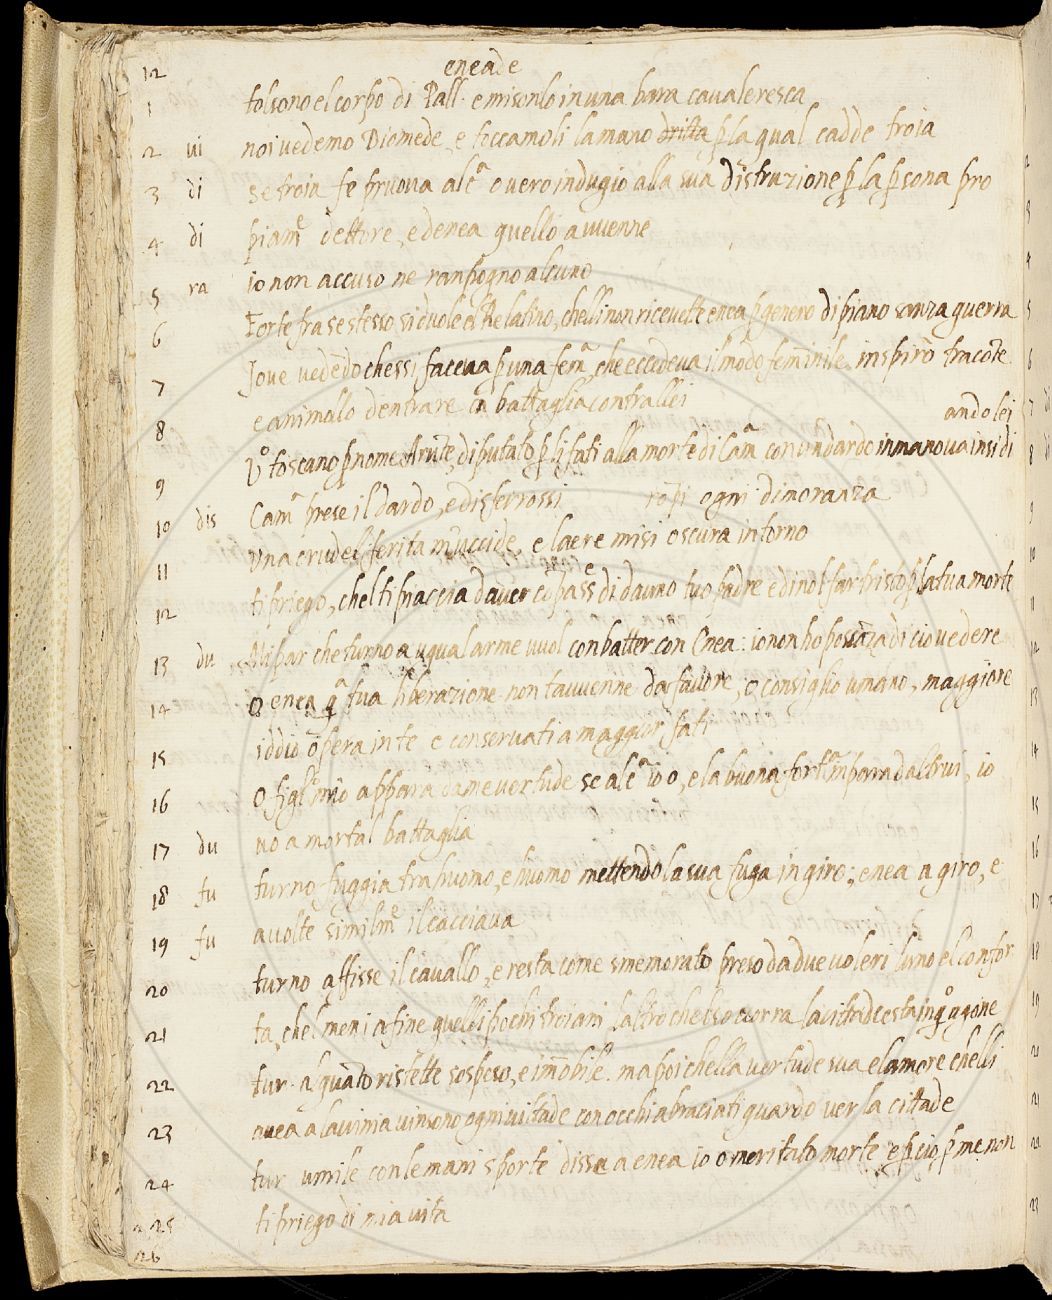 12 eneade
1 tolsono el corpo di Pall. e misonlo in una bara cavaleresca
2 vi noi vedemo Diomede, e toccamoli la mano dritta p la qual cadde troia
3 di se troia fe pruova alc̃ overo indugio alla sua distruzione p la psona pro
4 di piam̃ dettore, ed enea quello avvenne
5 ra io non accuso ne ranpogno alcuno
6 Forte fra se stesso si duole el Re latino, chelli non ricevette enea p genero di piano sanza guerra
Jove vedẽdo chessi faceva p una fem̃, che eccedeva il mõdo feminile inspirò tracõte
7 e animallo dentrare in battaglia contrallei
8 andolei
Vo toscano p nome Arũte, diputato p li fati alla morte di Cam̃ con un dardo in mano va insidi
9 Cam̃ prese il dardo, e disferrossi ropi ogni dimoranza
10 dis una crudel ferita m uccide, e laere misi oscura intorno
11 ti priego, chelti piaccia daver cõpass̃ di dauno tuo padre e dinol far tristo p la tua morte
12
13 du Mi par che turno a ugual arme vuol conbatter con Enea: io non ho possãza di cio vedere
14 O enea q̃ tua liberazione non tavvenne da favore, o consiglio umano, maggiore
iddio õpera in te e conservati a maggior fati
15
16 O figl̃ mio appara da me vertude se alc̃ io o, e la buona fort̃ inpara daltrui, io
17 du vo a mortal battaglia
18 fu turno fuggia tra huomo, e huomo mettendo la sua fuga in giro; enea a giro, e
19 fu a volte similm̃ il cacciava
20 turno affisse il cavallo, e resta come smemorato preso da due voleri luno el confor
21 ta, chel meni a fine quelli pochi troiani laltro chel soccorra la citta
22 tur. alquãto ristette sospeso, e im̃obile. ma poi chella vertude sua el amore chelli
23 avea a lavinia vinsono ogni viltade con occhi abraciati guardo ver la cittade
24 tur umile con le mani sporte disse a enea io o meritato morte e p cio p me non
25 ti priego di mia vita
26